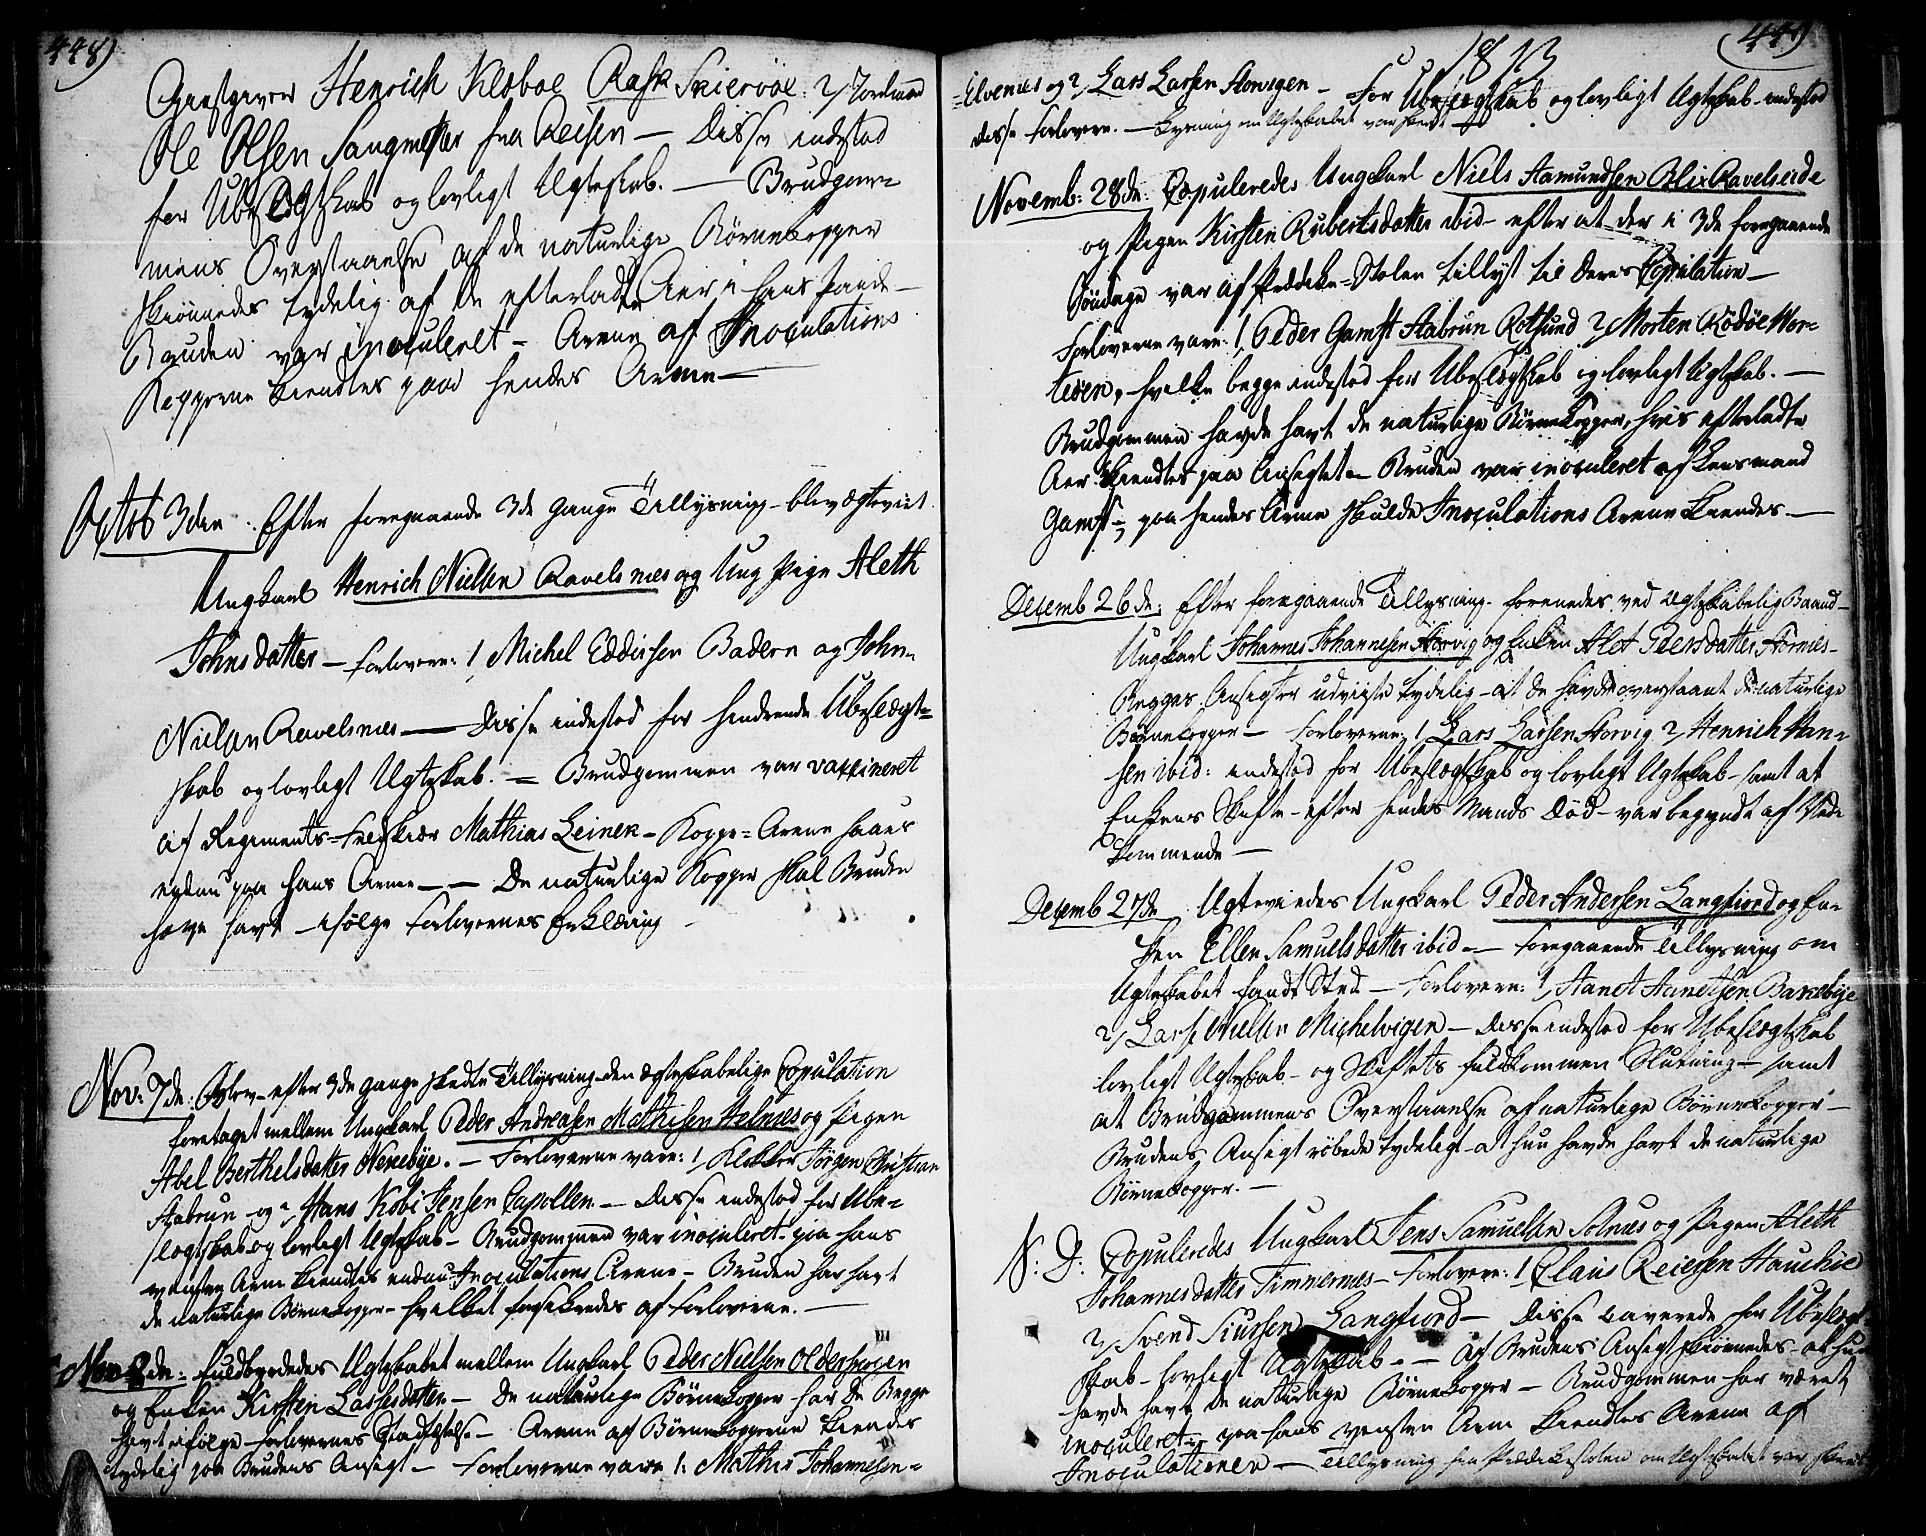 448)
Giæstgiver Henrich Klæboe Rask Skierøe 2, Nordmand
Ole Olsen Sangmester fra Reisen — Disse indestod
for Ubeslægtskab og lovligt Ægteskab. — Brudgom-
mens Overstaaelse af de naturlige Børnekopper
skiønnedes tydelig af de efterladte Aer i hans Pande —
Bruden var inoculeret — Arene af Inoculations
Kopperne kiendtes paa hendes Arme —
Octob 3den. Efter foregaaende 3de gange Tillysning — blev ægteviet
Ungkarl Henrich Nielsen Ravelsnæs og Ung Pige Aleth
Johnsdatter — Forlovere: 1, Michel Eddissen Badern og John
Nielsen Ravelsnæs — Disse indestod for hindrende Ubeslægt-
skab og lovligt Ægteskab. — Brudgommen var vaxineret
af Regiments-Feldskiær Mathias Leiner — Koppe-Arene haaes
endnu paa hans Arme — De naturlige Kopper skal Bruden
have havt ifølge Forlovernes Erklæring —
Nov: 7de: Blev — efter 3de gange skedte Tillysning — den ægteskabelige Copulation
foretaget mellem Ungkarl Peder Andreasen Mathisen Helnæs og Pigen
Abel Berthelsdatter Nenebye. — Forloverne vare: 1, Klokker Jørgen Christian
Aabrun og 2, Hans Kobi Jensen Capollen — Disse indestod for Ube-
slægtskab og lovligt Ægteskab — Brudgommen var inoculeret — paa hans
venstre Arm kiendtes endnu Inoculations Arene — Bruden har havt
de naturlige Børnekopper — hvilket forsikredes af Forloverne. —
Nov 8de: fuldbyrdedes Ægteskabet mellem Ungkarl Peder Nielsen Olderskogen
og Enken Kirsten Larsesdatter — De naturlige Børnekopper har de Begge
havt ifølge Forlovernes Stadfæstelse — Arene af Børnekopperne kiendes
tydelig paa Brudens Ansigt — Forloverne vare 1: Mathis Johannesen-
1813
(449)
Elvenæs og 2, Lars Larsen Storvigen — For Ubeslægtskab og lovligt Ægteskab indestod
disse Forlovere. — Lysning om Ægteskabet var skeedt —
Novemb: 28de: Copuleredes Ungkarl Niels Aamundsen Blix Ravelseide
og Pigen Kirsten Rubertsdatter ibid — efter at der i 3de foregaaende
Søndage var af Prædike-Stolen tillyst til deres Copulation —
Forloverne vare: 1, Peder Gamst Aabrun Rotsund 2, Morten Rödöe Mor-
tesen, hvilke begge indestod for Ubeslægtskab og lovligt Ægteskab. —
Brudgommen havde havt de naturlige Børnekopper, hvis efterladte
Aer kiendtes paa Ansigtet — Bruden var inoculeret af Lensmand
Gamst — paa hendes Arme skulde Inoculations Arene kiendes. —
Decemb 26de: Efter foregaaende Tillysning forenedes ved Ægteskabelig Baand —
Ungkarl Johannes Johannesen Storvig og Enken Alet Peersdatter Stornes —
Begges Ansigter udviiste tydelig — at de havde overstaaet de naturlige
Børnekopper — Forloverne: 1, Lars Larsen Storvig 2, Henrich Han-
sen ibid: indestod for Ubeslægtskab og lovligt Ægteskab — samt at
Enkens Skifte — efter hendes Mands Død — var begyndt af Ved-
kommende —
Decemb 27de Ægteviedes Ungkarl Peder Andersen Langfiord og En-
ken Ellen Samuelsdatter ibid — Foregaaende Tillysning om
Ægteskabet fandt Sted — Forlovere: 1, Aanet Aanetsen Bakkebye
2, Lars Nielsen Michelvigen — disse indestod for Ubeslægtskab
lovligt Ægteskab — og Skiftets fuldkommen Slutning — samt
at Brudgommens Overstaaelse af naturlige Børnekopper —
Brudens Ansigt røbede tydeligt at hun havde havt de naturlige
Børnekopper. —
S: D: Copuleredes Ungkarl Jens Samuelsen Solnæs og Pigen Aleth
Johannesdatter Timmernæs — Forlovere: 1, Claus Reiersen Haukøe
2, Svend Siursen Langfiord — Disse caverede for Ubeslægt
skab — lovligt Ægteskab. — Af Brudens Ansigt skiønnedes — at hun
havde havt de naturlige Børnekopper — Brudgommen har været
inoculeret — paa hans venstre Arm kiendtes Arene af
Inoculationen — Tillysning fra Prædikestolen om Ægteskabet var skeedt